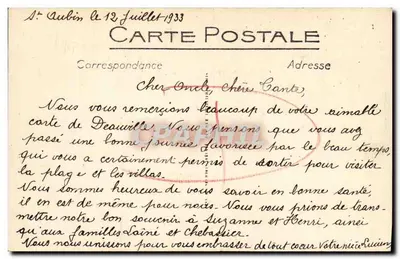 St Aubin le 12 Juillet 1933
CARTE POSTALE
Correspondance Adresse
Cher Oncle, chère Tante,
Nous vous remerçions beaucoup de votre aimable
carte de Deauville. Nous pensons que vous avez
passé une bonne journée favorisée par le beau temps,
qui vous a certainement permis de sortir pour visiter
la plage et les villas.
Nous somme heureux de vous savoir en bonne santé,
il en est de même pour nous. Nous vous prions de trans-
mettre notre bon souvenir à Suzanne et Henri, ainsi
qu'aux familles Lainé et
Nous nous unissons pour vous embrasser de tout cœur Votre nièce Lucienne